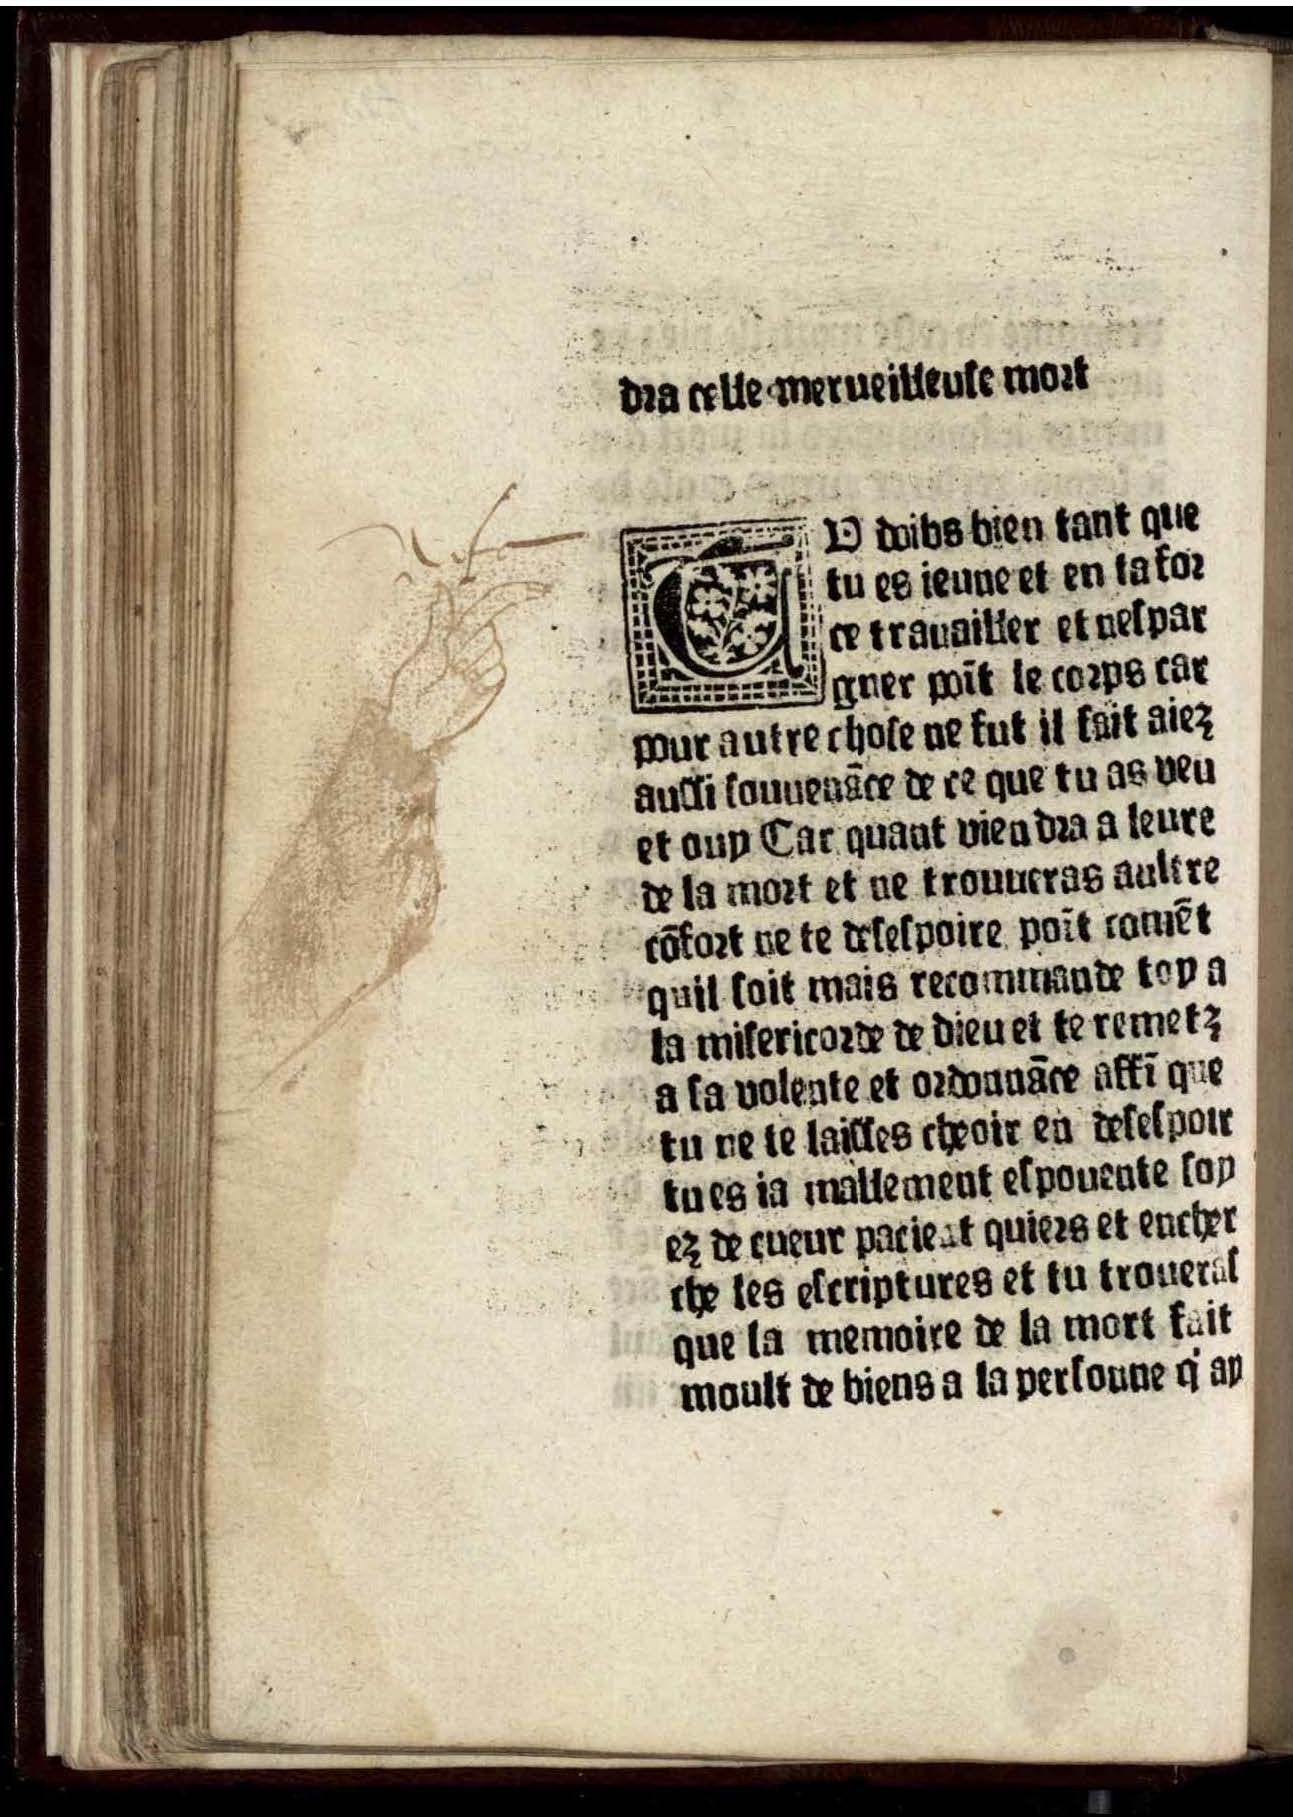 dra celle merueilleuse mort
TU doibs bien tant que
tu es ieune et en ta for
ce trauailler et nespar
gner poĩt le corps car
pour autre chose ne fut il fait aiez
aussi souuenãce de ce que tu as veu
et ouy Car quant viendra a leure
de la mort et ne trouueras aultre
cõfort ne te desespoire poĩt comẽt
quil soit mais recommande toy a
la misericorde de dieu et te remetz
a sa volente et ordonnãce affĩ que
tu ne te laisses cheoir en desespoir
tu es ia mallement espouente soy
ez de cueur pacient quiers et encher
che les escriptures et tu troueras
que la memoire de la mort fait
moult de biens a la personne q̃ ay